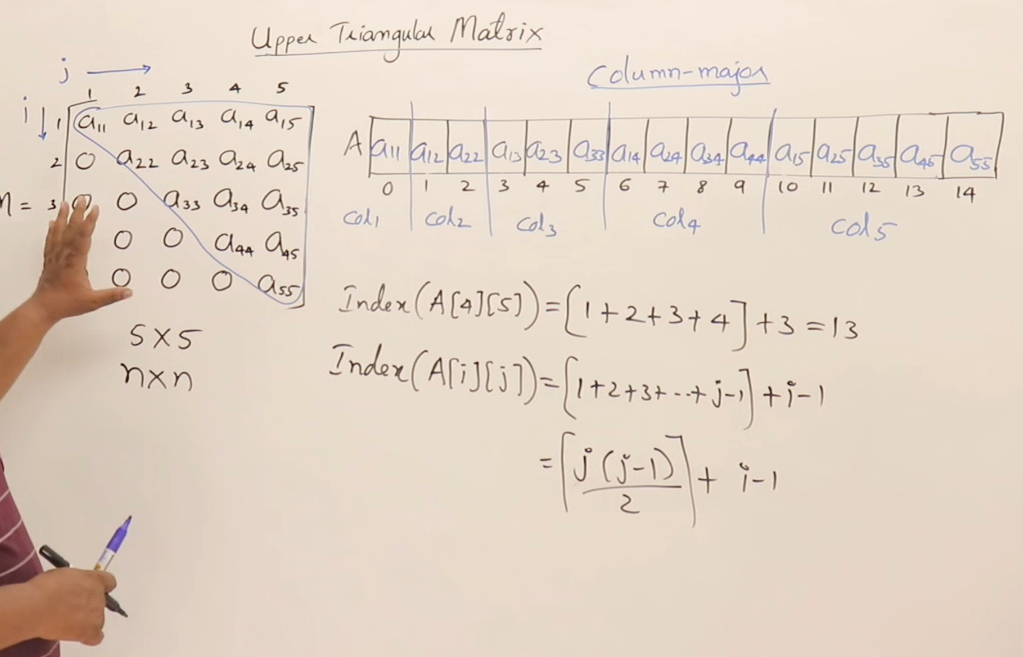 Upper Triangular Matrix
j
1 2 3 4 5
i
1 a11 a12 a13 a14 a15
2 0 a22 a23 a24 a25
= 3 0 0 a33 a34 a35
0 0 a44 a45
0 0 0 a55
5 X 5
n x n
Column-major
A a11 a12 a22 a13 a23 a33 a14 a24 a34 a44 a15 a25 a35 a45 a55
0 1 2 3 4 5 6 7 8 9 10 11 12 13 14
Col1 Col2 Col3 Col4 Col5
Index(A[4][5]) = [1+2+3+4] + 3 = 13
Index(A[i][j]) = [1+2+3+--+ j-1] + i-1
= [j(j-1)/2] + i-1